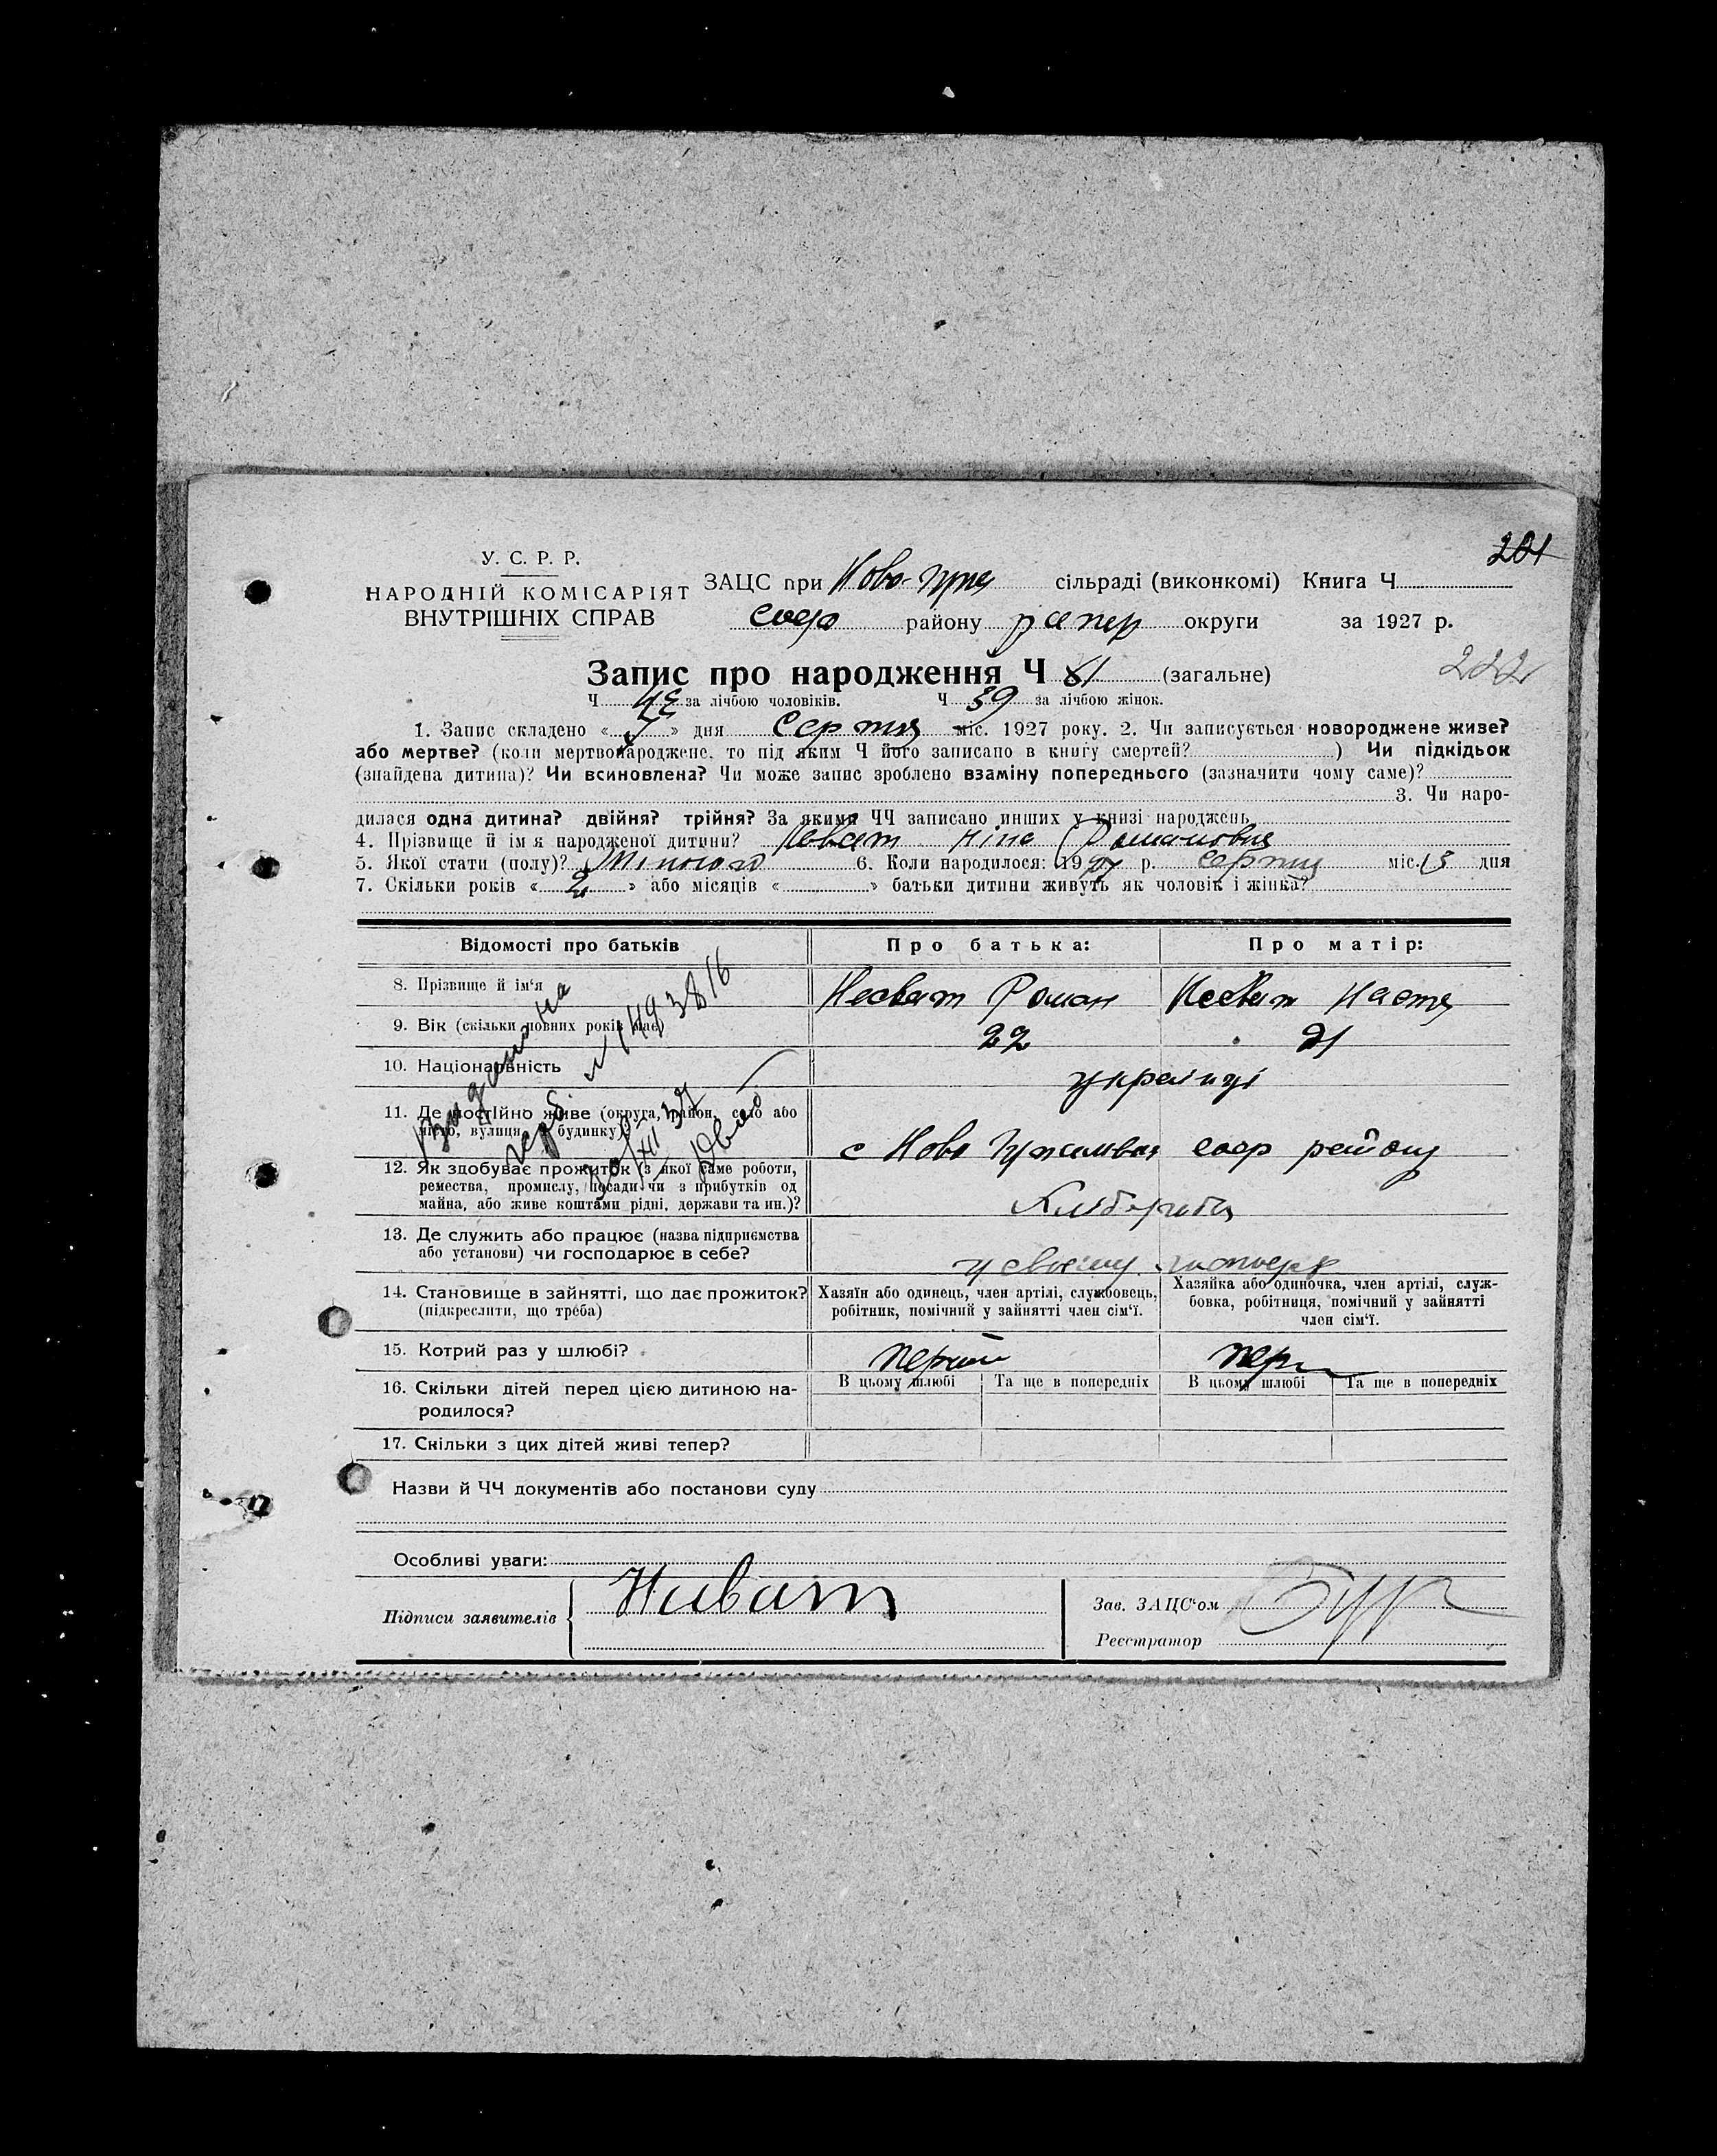 201
У. С. Р. Р.
НАРОДНІЙ КОМІСАРІЯТ
ВНУТРІШНІХ СПРАВ
ЗАЦС при Ново- сільраді (виконкомі) Книга Ч
району округи за 1927 р.
222
Запис про народження Ч 81 (загальне)
Ч за лічбою чоловіків. Ч 39 за лічбою жінок.
1. Запис складено « » дня Серпня міс. 1927 року. 2. Чи записується новороджене живе?
або мертве? (коли мертвонароджене, то під яким Ч його записано в книгу смертей? ) Чи підкідьок
(знайдена дитина)? Чи всиновлена? Чи може запис зроблено взаміну попереднього (зазначити чому саме)?
3. Чи наро-
дилася одна дитина? двійня? трійня? За якими ЧЧ записано инших у книзі народжень
4. Прізвище й ім'я народженої дитини? Ніна Романовна
5. Якої стати (полу)? 6. Коли народилося: 1927 р. серпня міс. дня
7. Скільки років « 2 » або місяців « » батьки дитини живуть як чоловік і жінка?
Відомості про батьків Про батька: Про матір:
8. Прізвище й ім'я Несват Роман Несват Настя
9. Вік (скільки повних років має) 22 21
10. Національність українці
11. Де постійно живе (округа, район, село або
місто, вулиця, будинку)? с Ново району
12. Як здобуває прожиток (з якої саме роботи,
ремества, промислу, посади чи з прибутків од
майна, або живе коштами рідні, держави та ин.)?
13. Де служить або працює (назва підприємства
або установи) чи господарює в себе? у своему
14. Становище в зайнятті, що дає прожиток?
(підкреслити, що треба)
Хазяїн або одинець, член артілі, службовець,
робітник, помічний у зайнятті член сім'ї.
Хазяйка або одиночка, член артілі, служ-
бовка, робітниця, помічний у зайнятті
член сім'ї.
15. Котрий раз у шлюбі? перший пер
16. Скільки дітей перед цією дитиною на-
родилося?
В цьому шлюбі Та ще в попередніх В цьому шлюбі Та ще в попередніх
17. Скільки з цих дітей живі тепер?
Назви й ЧЧ документів або постанови суду
Особливі уваги:
Підписи заявителів
Зав. ЗАЦС'ом
Реєстратор